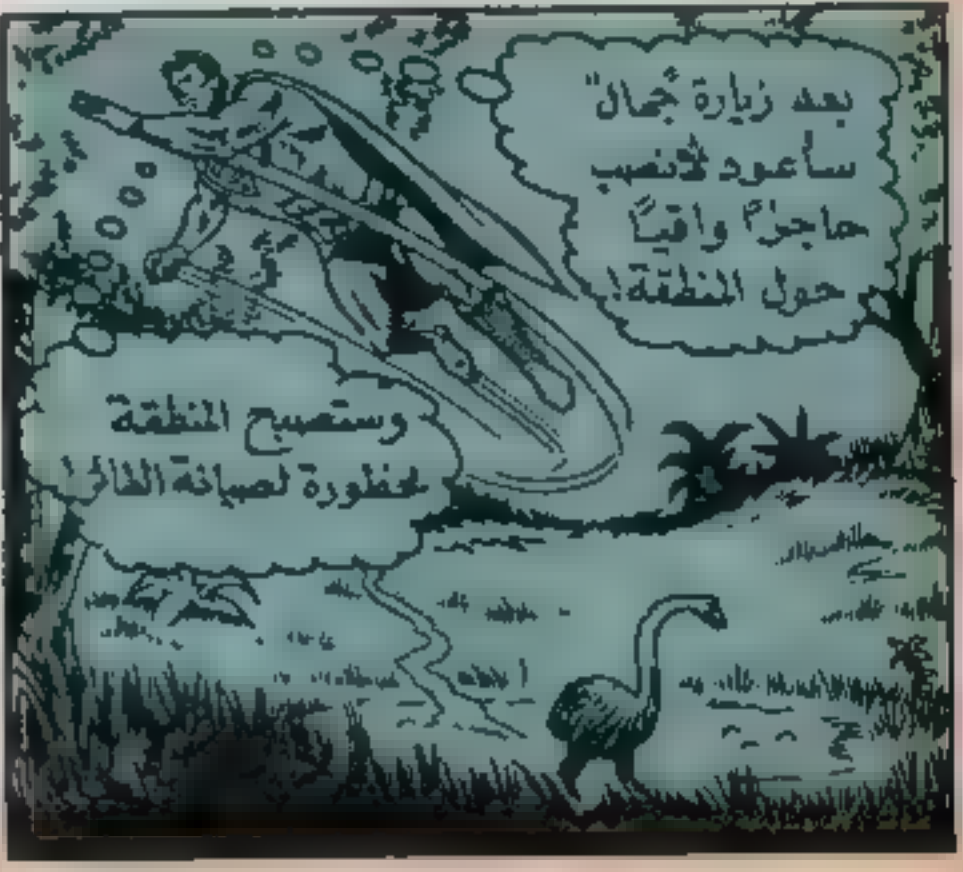 بعد زيارة جمال"
سأعود لأنصب
حاجزاً واقياً
حول المنطقة!
وستصبح المنطقة
محظورة لصيانة الطائر!